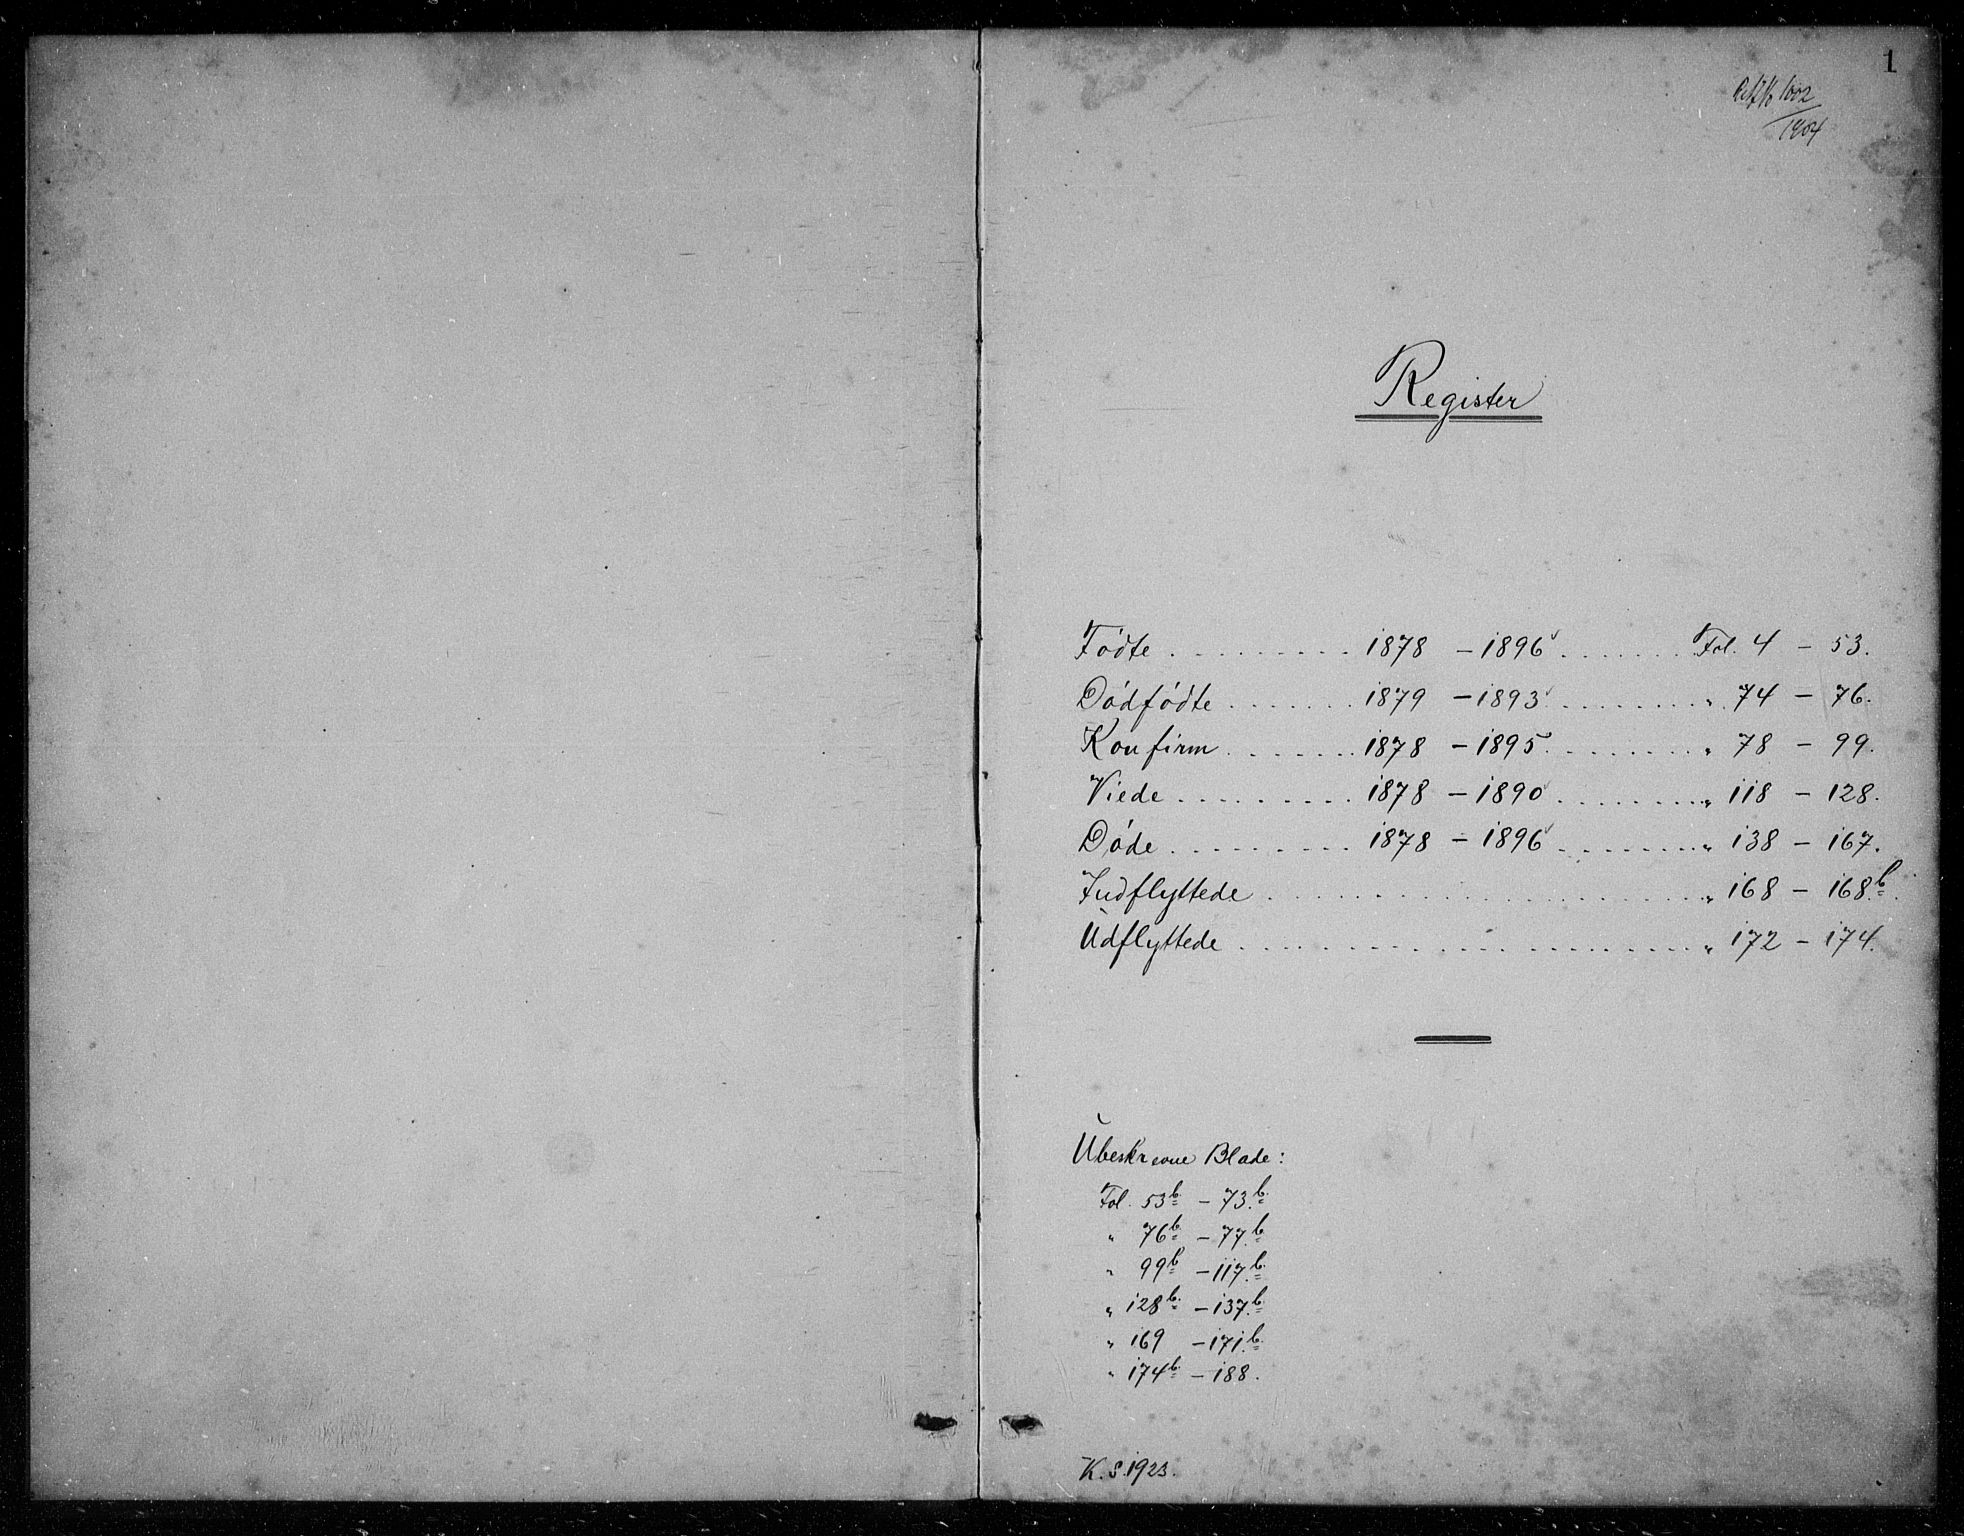 1
1002
1904
Register
Födte . . . . . . . . . 1878 – 1896 . . . . . . . Fol. 4 – 53.
Dödfödte . . . . . . . 1879 – 1893 . . . . . . . . „ 74 – 76.
Konfirm . . . . . . . 1878 – 1895 . . . . . . . . „ 78 – 99.
Viede . . . . . . . . . 1878 – 1890 . . . . . . . . „ 118 – 128.
Döde . . . . . . . . . 1878 – 1896 . . . . . . . . „ 138 – 167.
Indflyttede . . . . . . . . . . . . . . . . . . . . . „ 168 – 168b.
Udflyttede . . . . . . . . . . . . . . . . . . . . . „ 172 – 174.
Ubeskrevne Blade:
Fol. 53b – 73b.
„ 76b – 77b
„ 99b – 117b.
„ 128b – 137b
„ 169 – 171b.
„ 174b – 188.
K. S. 1923.